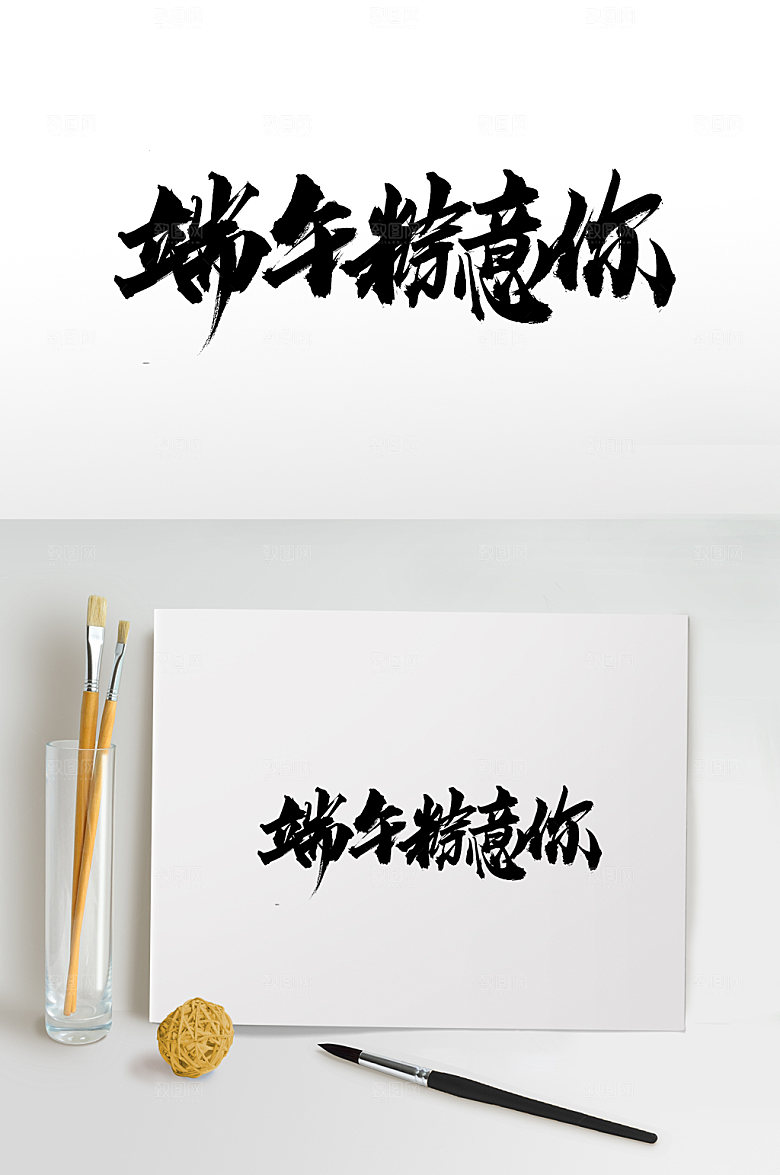 端午粽意你
端午粽意你